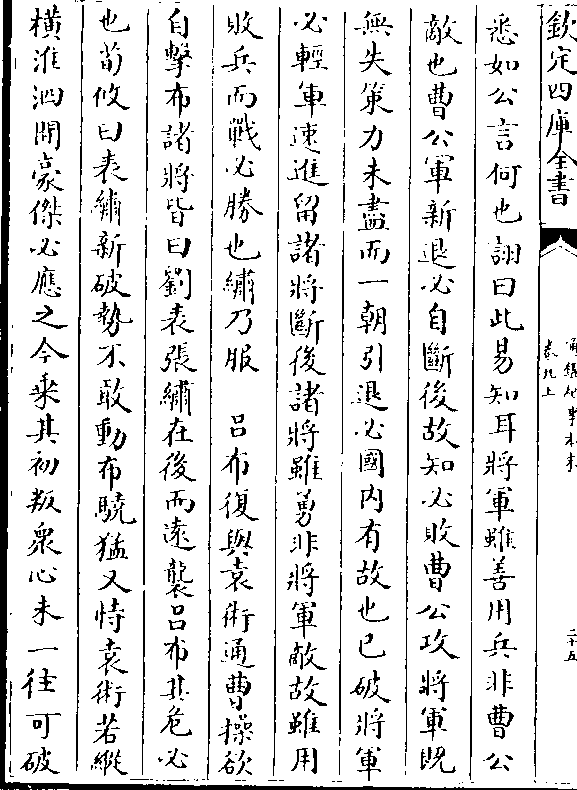 欽定四庫全書
通鑑紀事本末
卷九上
二十五
悉如公言何也詡曰此易知耳將軍雖善用兵非曹公
敵也曹公軍新退必自斷後故知必敗曹公攻將軍既
無失策力未盡而一朝引退必國内有故也已破將軍
必輕軍速進留諸將斷後諸將雖勇非將軍敵故雖用
敗兵而戰必勝也繡乃服　吕布復與袁術通曹操欲
自擊布諸將皆曰劉表張繡在後而遠襲吕布其危必
也荀攸曰表繡新破勢不敢動布驍猛又恃袁術若縱
橫淮泗間豪傑必應之今乗其初叛衆心未一往可破